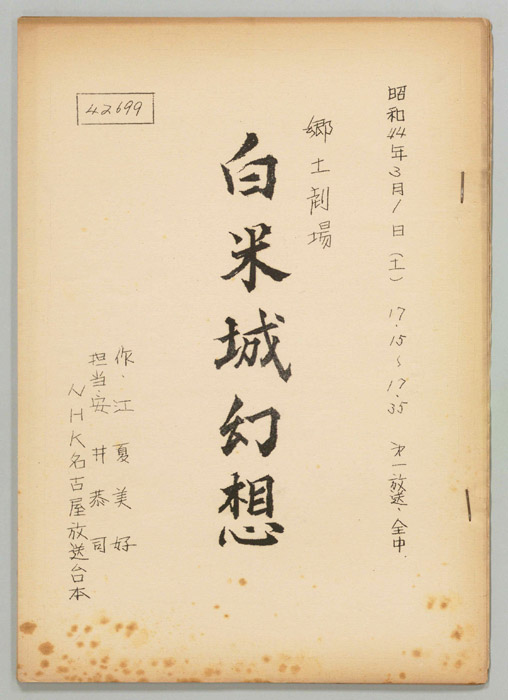 昭和44年3月1日(土) 17.15〜17.35 第一放送、全中.
郷土劇場
白米城幻想
作.江夏美好
担当.安井恭司
NHK名古屋放送台本
42699